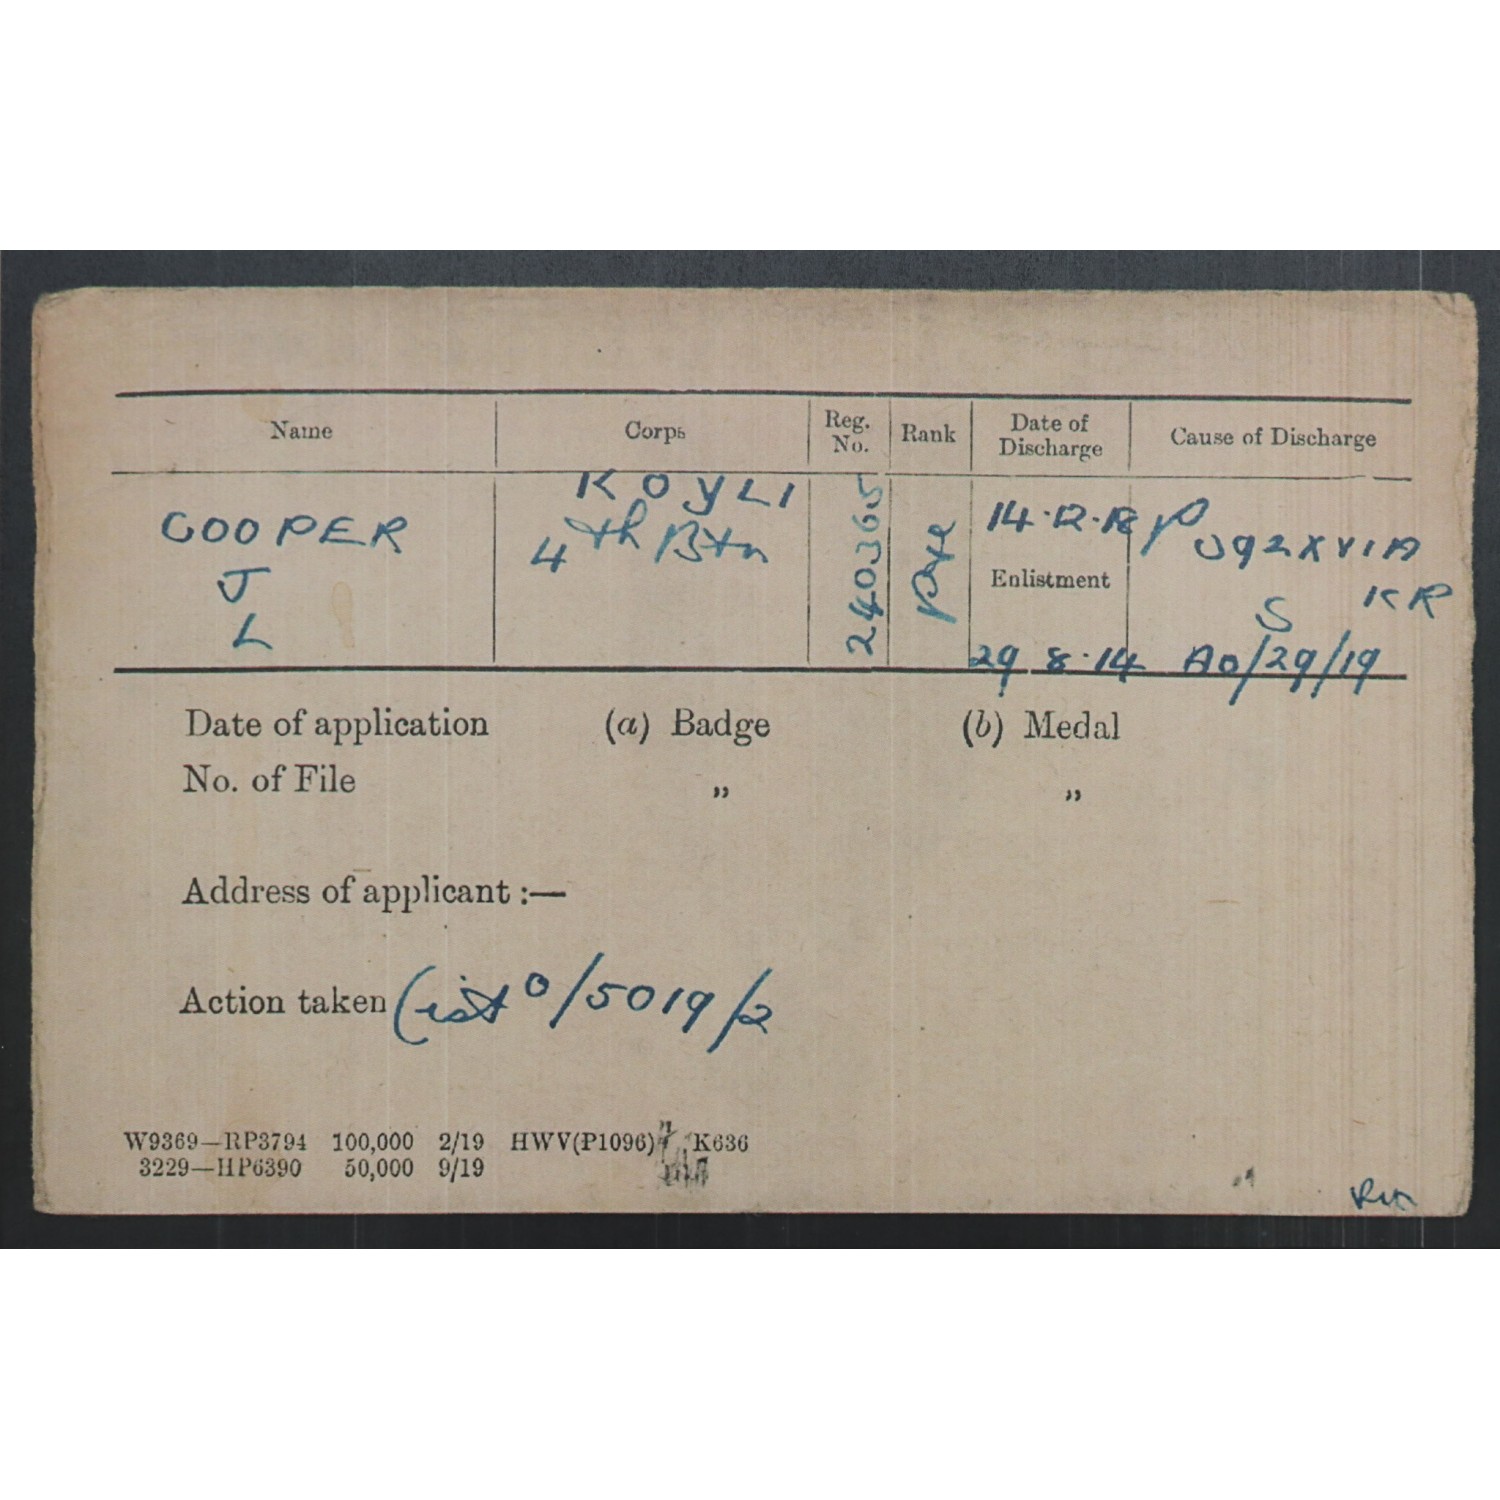 Name Corps Reg. No. Rank Date of Discharge Cause of Discharge
COOPER J L
KOYLI
4th Btn
240365
Pte
14.12.18
Enlistment
29 8.14
P 392 XVI A
KR
S
AO/29/19
Date of application (a) Badge (b) Medal
No. of File „ „
Address of applicant :—
Action taken List O/5019/2
W9369—RP3794 100,000 2/19 HWV(P1096) K636
3229—HP6390 50,000 9/19